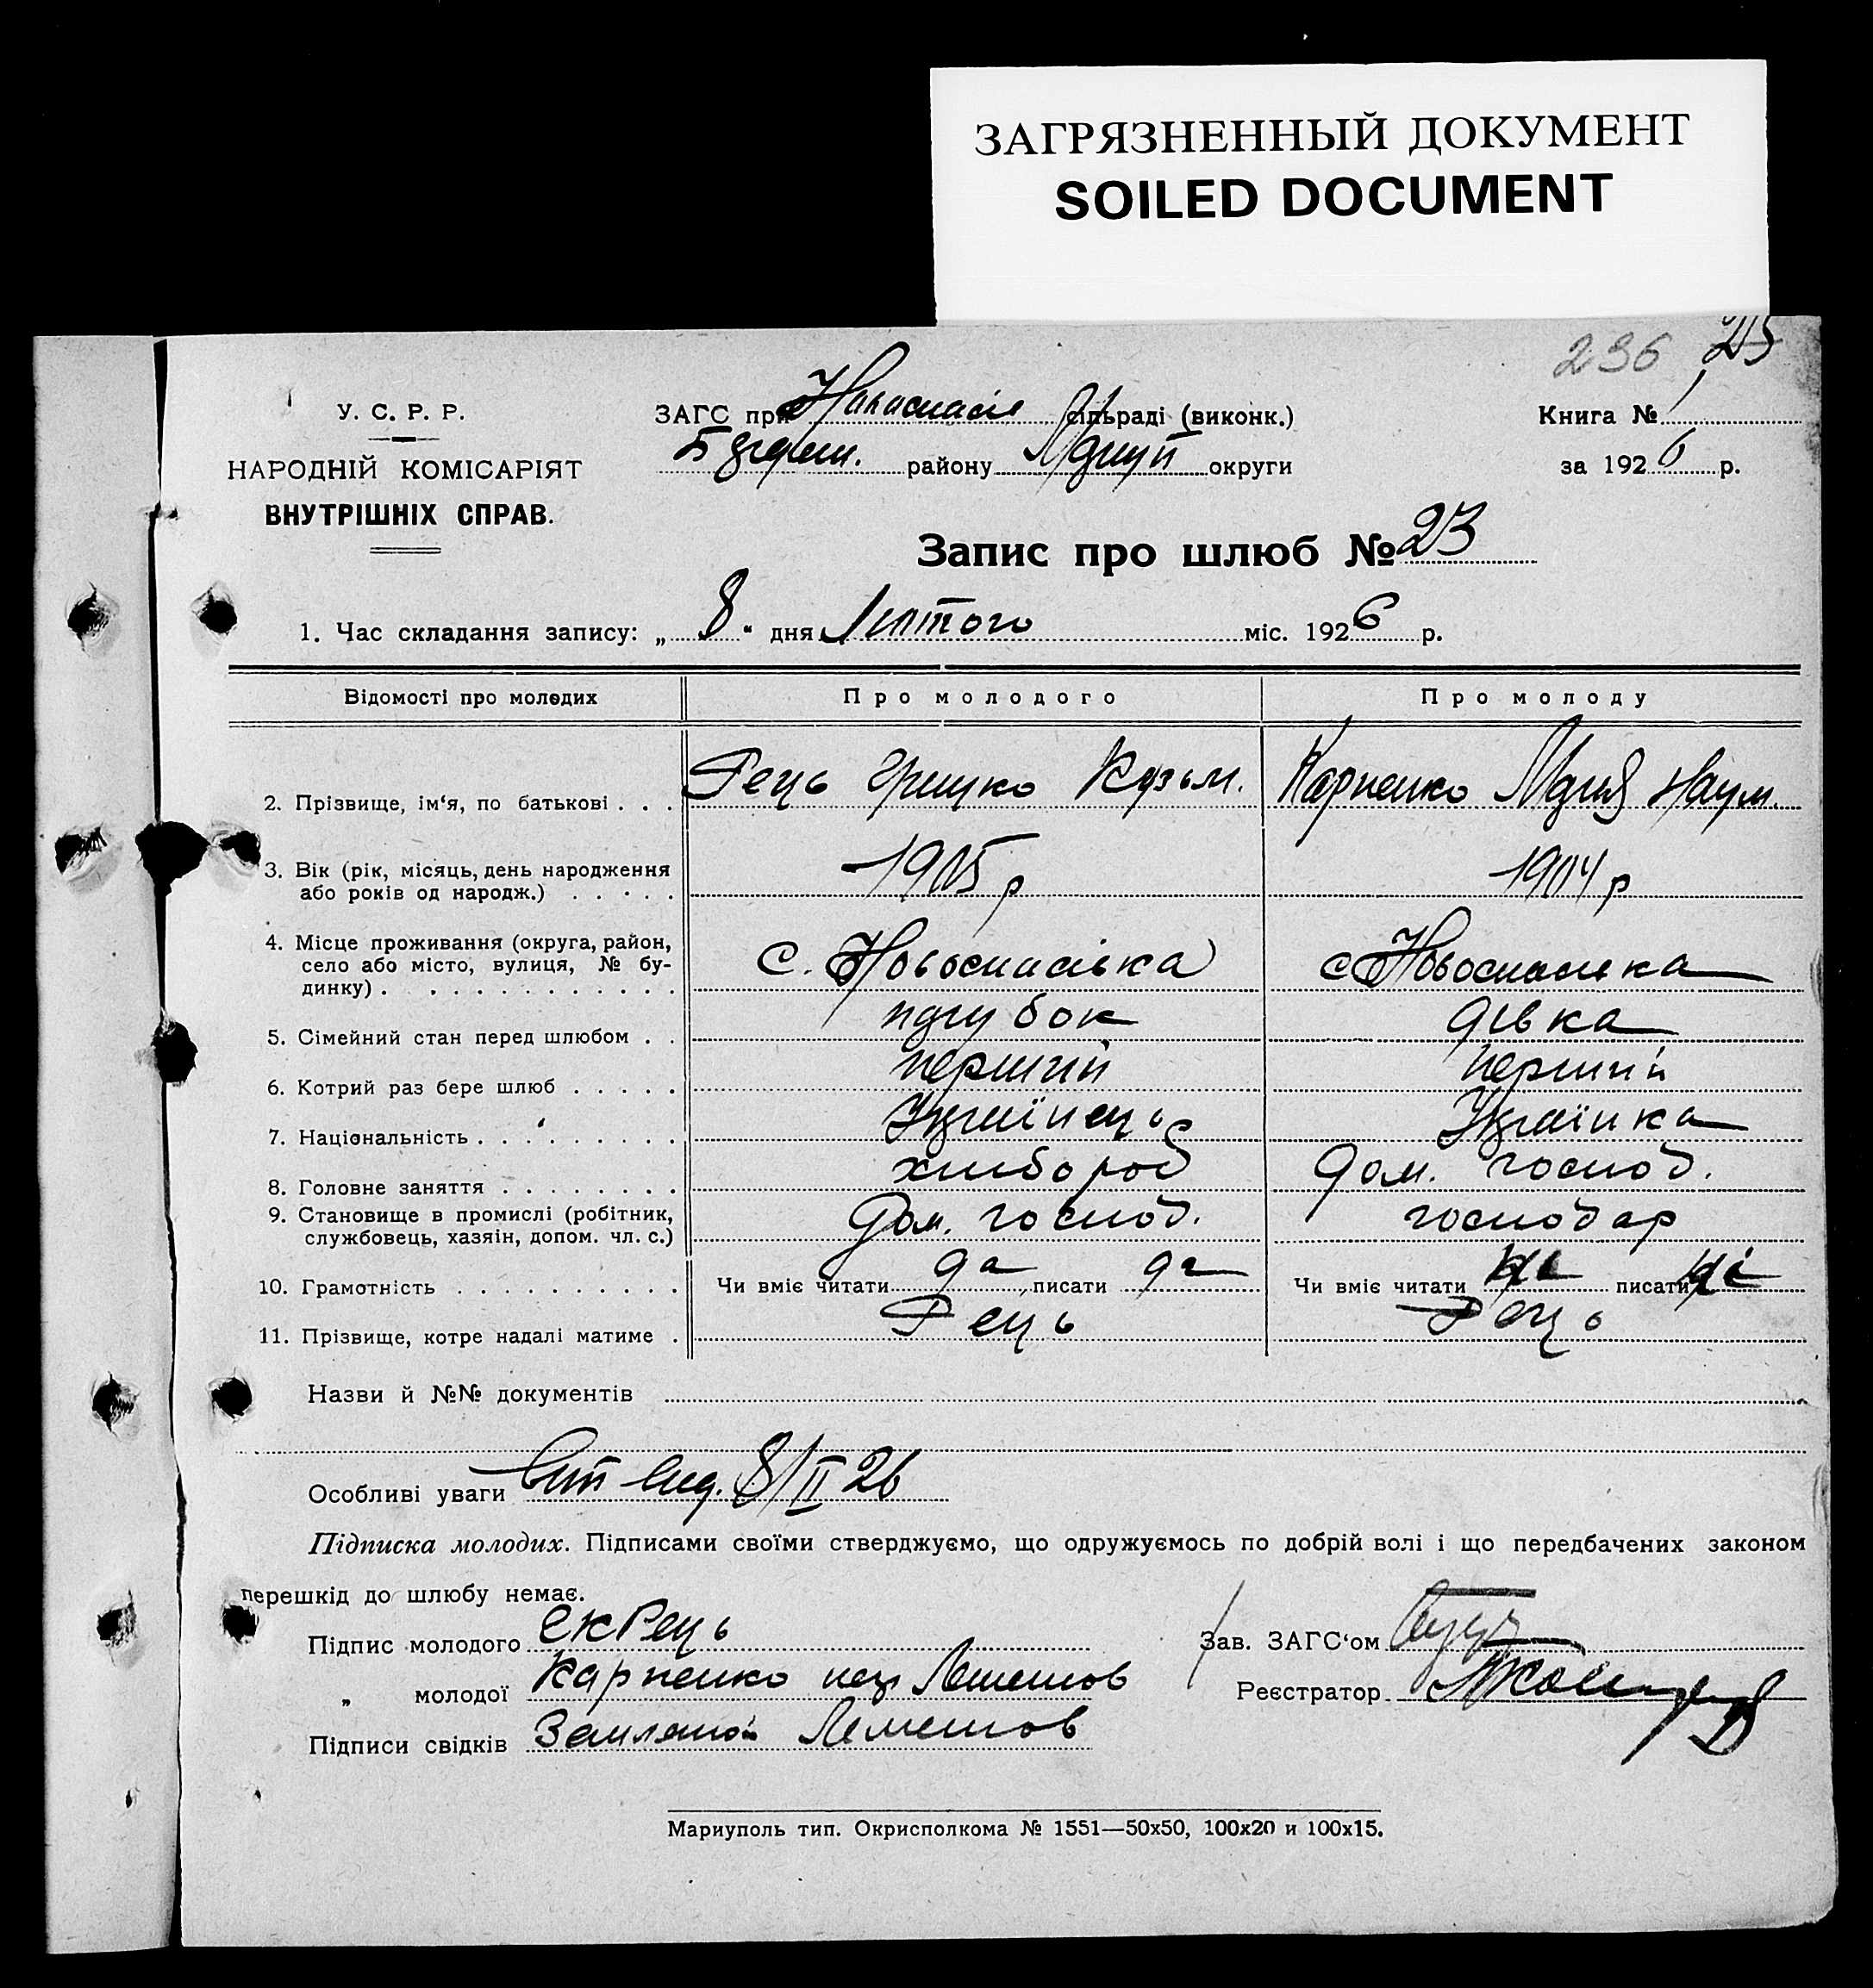 ЗАГРЯЗНЕННЫЙ ДОКУМЕНТ
SOILED DOCUMENT
236 23
У. С. Р. Р.
НАРОДНІЙ КОМІСАРІЯТ
ВНУТРІШНІХ СПРАВ.
ЗАГС при сільраді (виконк.)
району округи
Книга № 1
за 1926 р.
Запис про шлюб № 23
1. Час складання запису: „ 8 “ дня Лютого міс. 1926 р.
Відомості про молодих Про молодого Про молоду
2. Прізвище, ім‘я, по батькові . . . Рець Грицко Кузьм. Карпенко Мария Наум.
3. Вік (рік, місяць, день народження
або років од народж.) . . . . . 1905 р 1904 р
4. Місце проживання (округа, район,
село або місто, вулиця, № бу-
динку) . . . . . . . . . . . . с. Новоспасівка с Новоспасівка
5. Сімейний стан перед шлюбом . . парубок дівка
6. Котрий раз бере шлюб . . . . . перший перший
7. Національність . . . . . . . . . Українець Українка
8. Головне заняття . . . . . . . . хлібороб дом. господ.
9. Становище в промислі (робітник,
службовець, хазяін, допом. чл. с.) дом. господ. господар
10. Грамотність . . . . . . . . . . Чи вміє читати да писати да Чи вміє читати ні писати ні
11. Прізвище, котре надалі матиме . Рець Рець
Назви й №№ документів
Особливі уваги вид. 8/II 26
Підписка молодих. Підписами своїми стверджуємо, що одружуємось по добрій волі і що передбачених законом
перешкід до шлюбу немає.
Підпис молодого Рець
Зав. ЗАГС‘ом
„ молодої Карпенко Лемешов
Реєстратор
Підписи свідків Земляной Лемешов
Мариуполь тип. Окрисполкома № 1551—50х50, 100х20 и 100х15.